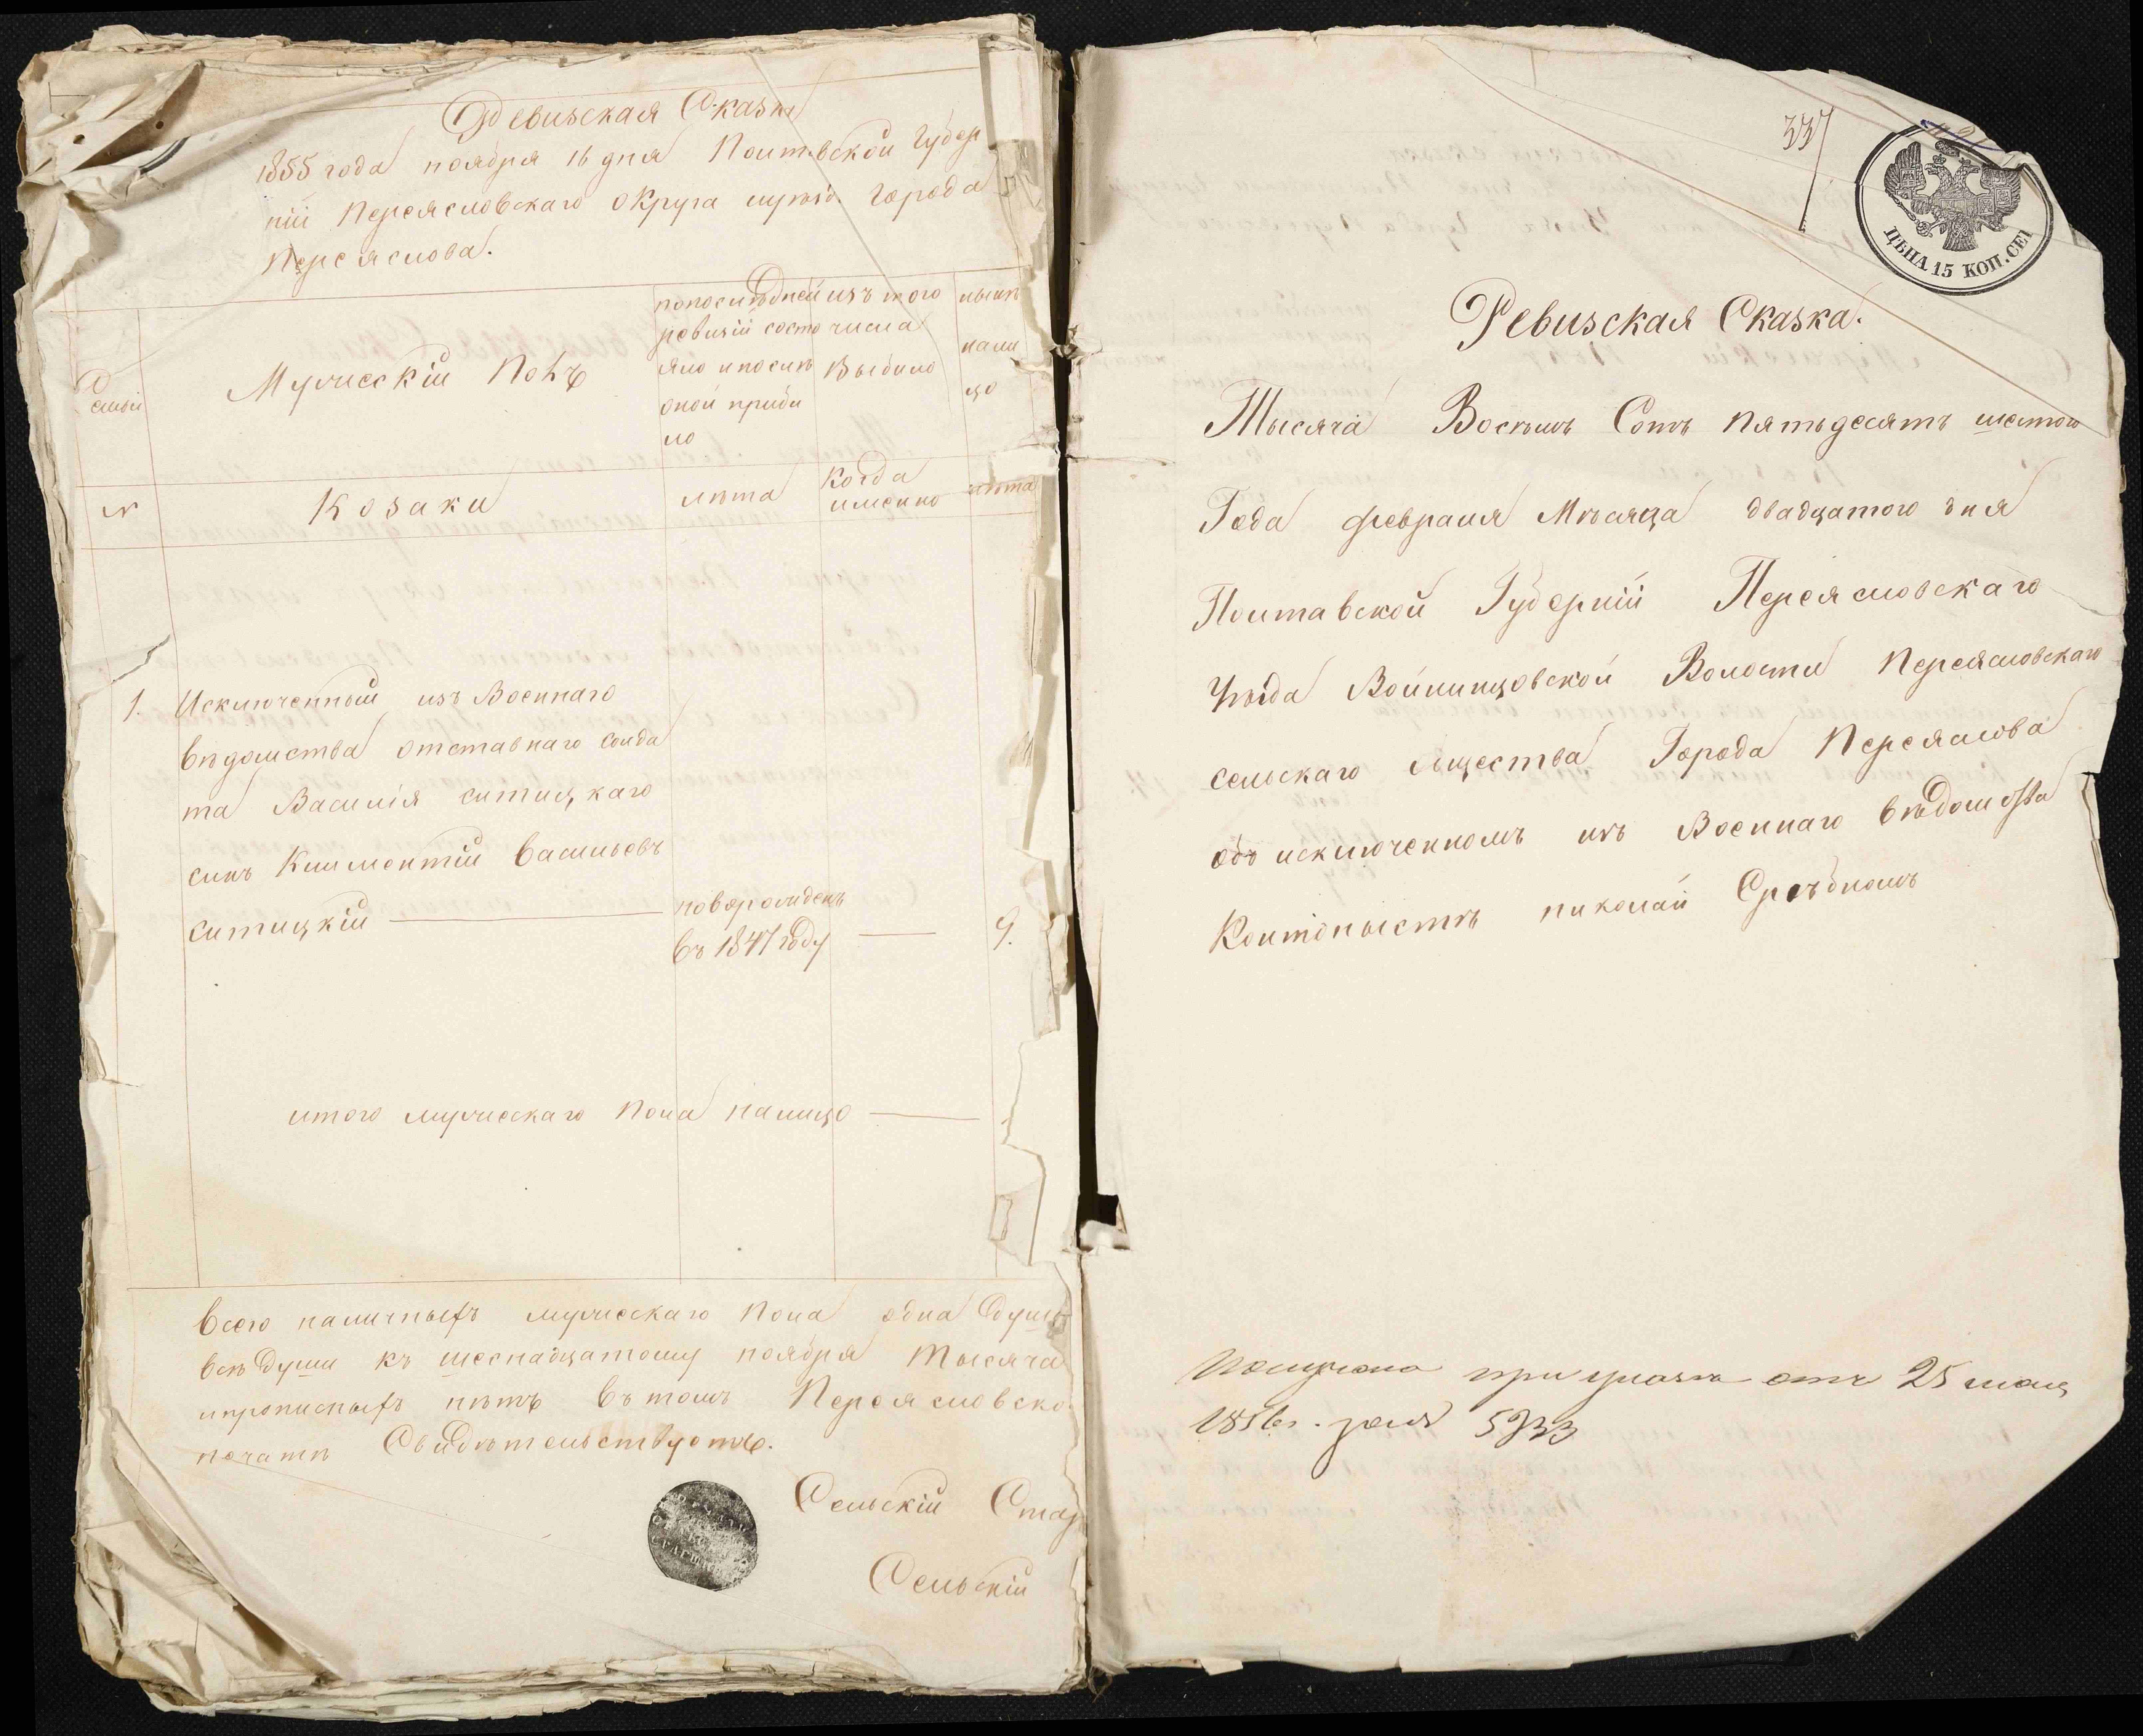 Ревизская Сказка
1855 года ноября 16 дня Полтавской Губер
ніи Переясловскаго округа города
Переяслова.
Семьи
Мужескій Полъ
попоследней
ревизіи состо
яло и послѣ
оной прибы
ло
изъ того
числа
Выбыло
нынѣ
нали
цо
№
Козаки
лѣта
Когда
именно
лѣта
1.
Исключенный изъ Военнаго
вѣдомства отставнаго солда
та Василія ситицкаго
синъ Климентій Васильевъ
ситицкій
новорожденъ
въ 1847 году
9.
итого мужескаго пола налицо
Всего наличныхъ мужескаго пола една Душа
всѣ Души къ шеснадцатому ноября Тысяча
ипрописныхъ нѣтъ въ томъ Переясловско
печати Свидѣтельствуетъ.
Сельскій Стар
Сельскій
337
ЦѢНА 15 КОП. СЕ
Ревизская Сказка.
Тысяча Восемъ Сотъ пятьдесятъ шестого
Года февраля Мѣсяца двадцатого дня
Полтавской Губерніи Переясловскаго
Уѣзда Войнинцовской Волости Переясловскаго
сельскаго общества Города Переяслова
объ исключенномъ изъ Военнаго вѣдомства
Контонистѣ николай Средномъ
Получена при указѣ отъ 25 мая
1856 г. за № 5933